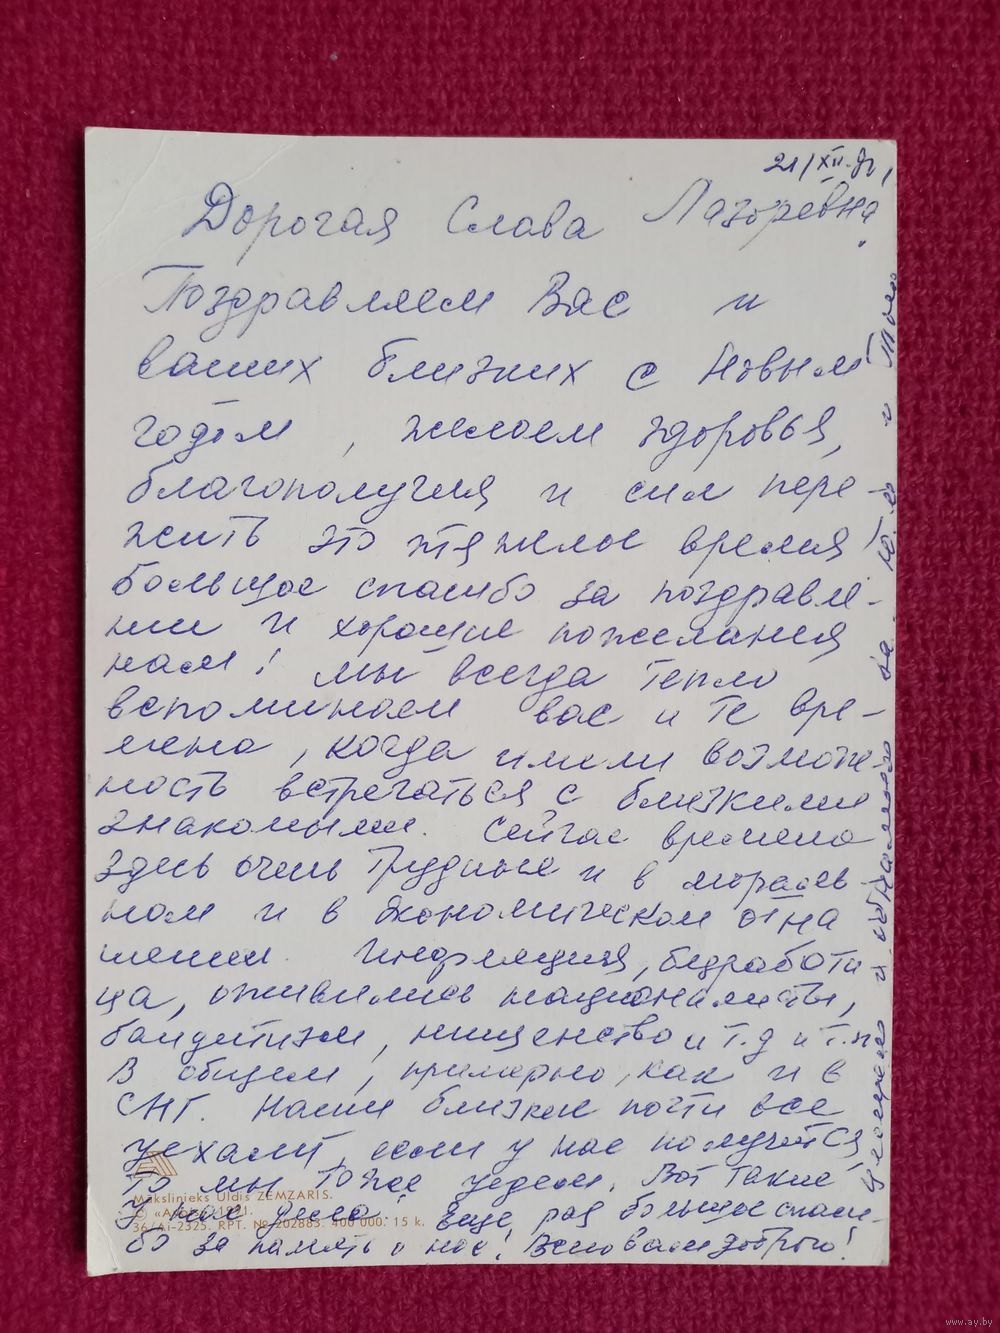 21/XII-92
Дорогая Слава Лазоревна.
Поздравляем Вас и
ваших близких с Новым
годом, желаем здоровья,
благополучия и сил пере-
жить это тяжелое время
большое спасибо за поздравле-
нии и хорошие пожелания
нам! мы всегда тепло
вспоминаем вас и те вре-
мена, когда имели возмож
ность встречаться с близкими
знакомыми. Сейчас времена
здесь очень трудные и в мораль
ном и в экономическом отна
шении. Инфляция, безработи
ца, оживились националисты,
бандитизм, нищенство и т.д и т.п
В общем, примерно, как и в
СНГ. Наши близкие почти все
уехали, если у нас получится,
то мы тоже уедем. Вот такие
у нас дела. Еще раз большое спаси-
бо за память о нас! Всего вам доброго!
Целуем и обнимаем
Mākslinieks Uldis ZEMZARIS.
36/Ai-2325. RPT. № 202883. 400 000. 15 k.
www.ay.by